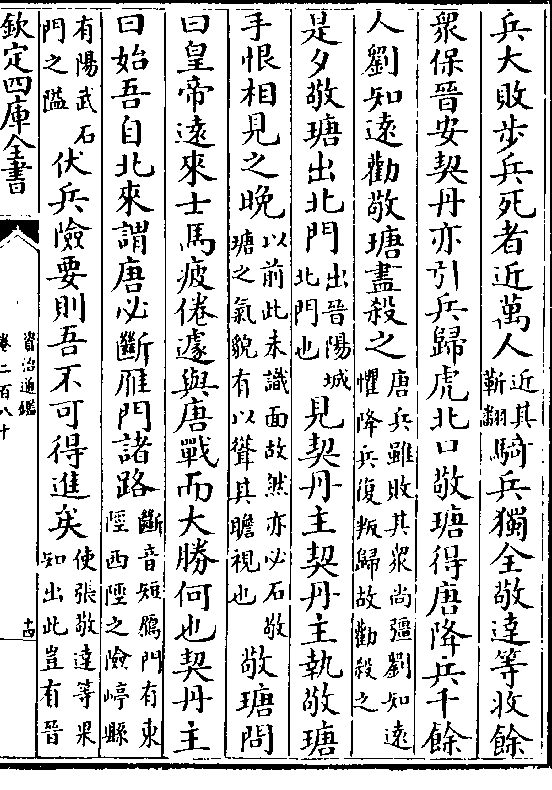 兵大敗步兵死者近萬人近其靳翻騎兵獨全敬達等收餘
衆保晉安契丹亦引兵歸虎北口敬瑭得唐降兵千餘
人劉知遠勸敬瑭盡殺之唐兵雖敗其衆尚彊劉知遠懼降兵復叛歸故勸殺之
是夕敬瑭出北門出晉陽城北門也見契丹主契丹主執敬瑭
手恨相見之晚以前此未識面故然亦必石敬瑭之氣貌有以聳其瞻視也敬瑭問
曰皇帝遠來士馬疲倦遽與唐戰而大勝何也契丹主
曰始吾自北來謂唐必斷雁門諸路斷音短鴈門有東陘西陘之險崞縣
有陽武石門之隘伏兵險要則吾不可得進矣使張敬達等果知出此豈有晉
欽定四庫全書
資治通鑑
卷二百八十
十四